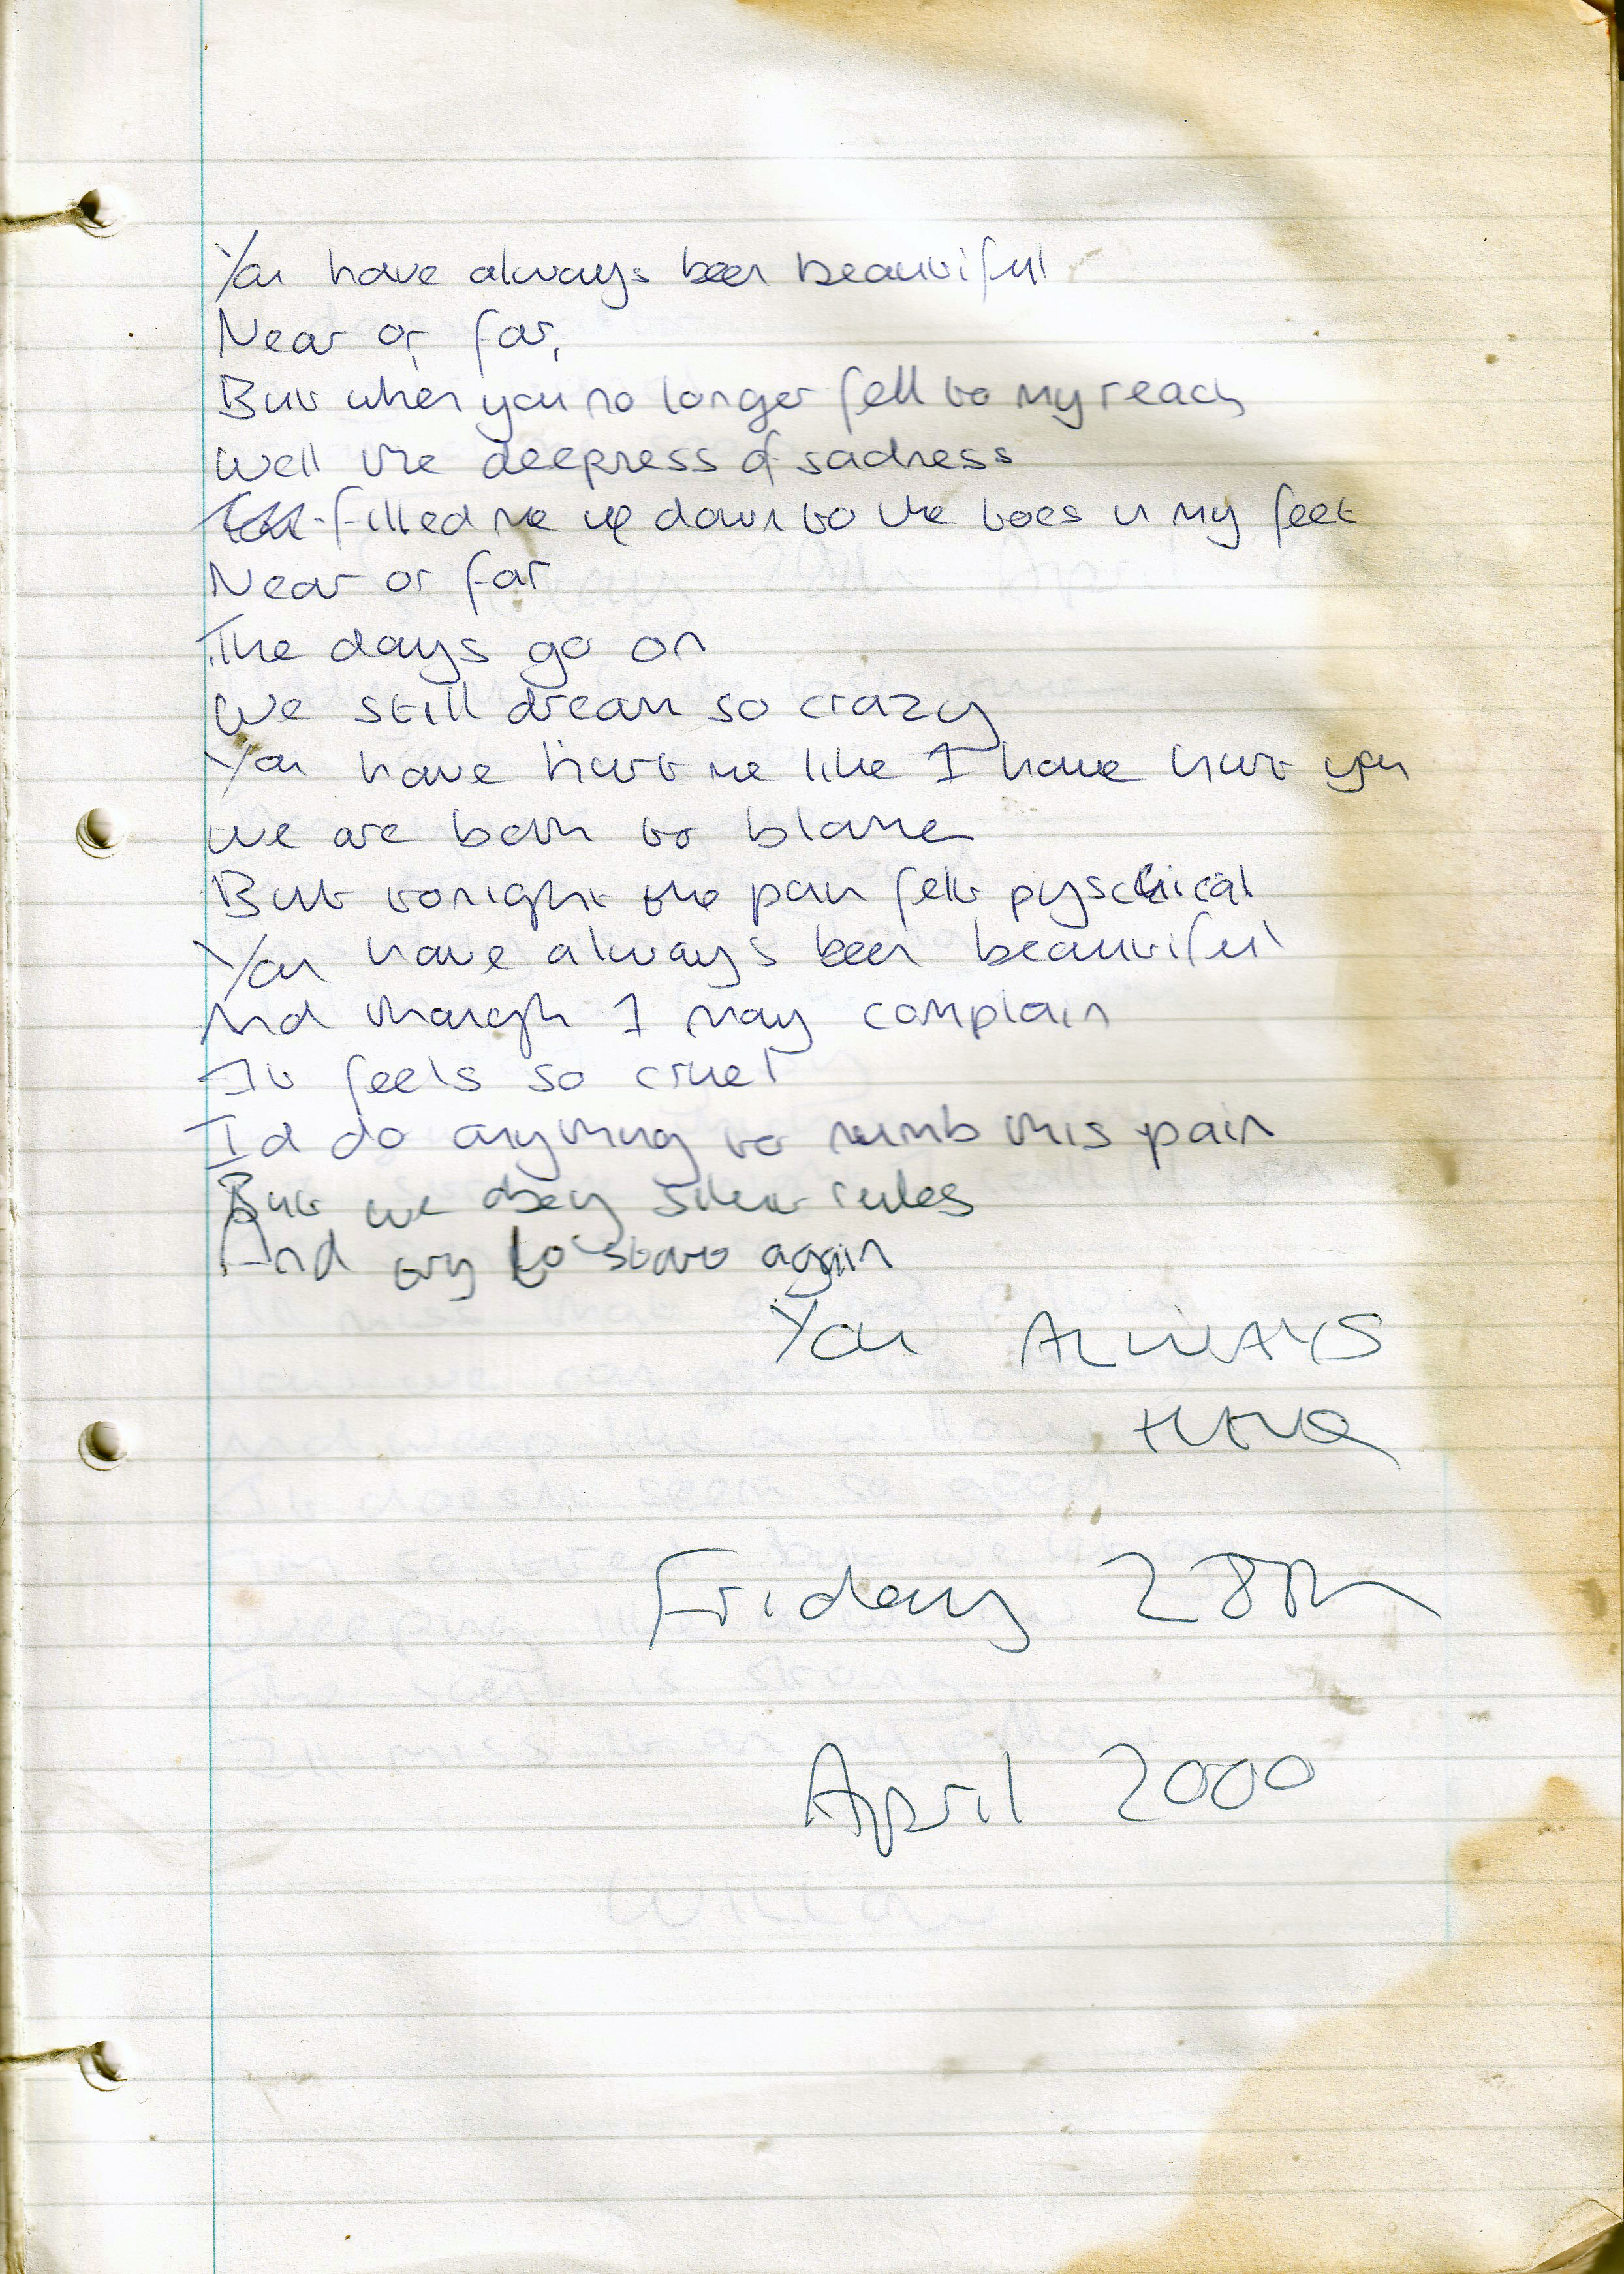 You have always been beautiful
Near or far,
But when you no longer fell to my reach
Well the deepness of sadness
filled me up down to the toes in my feet
Near or far
The days go on
We still dream so crazy
You have hurt me like I have hurt you
We are both to blame
But tonight the pain felt pyschical
You have always been beautiful
And though I may complain
It feels so cruel
Id do anything to numb this pain
But we obey silent rules
And try to start again
You ALWAYS
HAVE
Friday 28th
April 2000